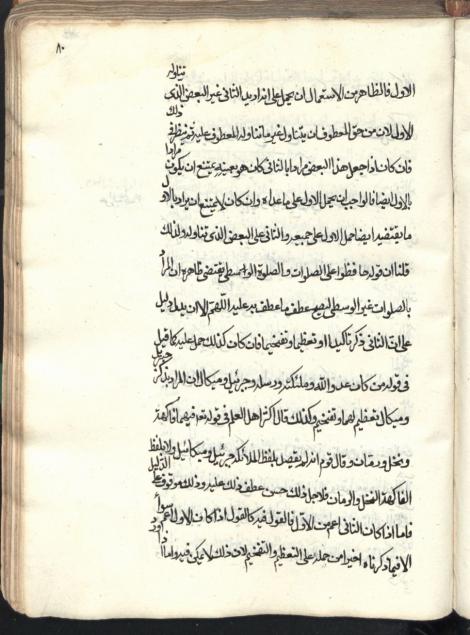 ٨٠
الاول فالظاهر من الاستعمال ان يحمل على انه اريد بالثاني غير البعض الذي تناوله
الاول لان من حق المعطوف ان يتناول غير ما تناوله المعطوف عليه ثم ينظر في ذلك
فان كان اذا جعل هذا البعض مرادا بالثاني كان هو بعينه يمتنع ان يكون مرادا
بالاول ايضا فالواجب ان يحمل الاول على ما عداه وان كان لا يمتنع ان يراد بالاول
ما يقتضيه ايضا حمل الاول على جميعه والثاني على البعض الذي تناوله ولذلك
قلنا ان قوله حافظوا على الصلوات والصلوة الوسطى يقتضي ظاهره ان المراد
بالصلوات غير الوسطى ليصح عطف ما عطف به عليه اللهم الا ان يدل دليل
على ان الثاني ذكر تأكيدا او تعظيما وتفخيما فان كان كذلك حمل عليه كما قيل
في قوله من كان عدوا لله وملئكته ورسله وجبرئيل وميكال ان المراد بذكر جبرئيل
وميكال تعظيم لهما وتفخيم وكذلك قال اكثر اهل العلم في قوله تعالى فيهما فاكهة
ونخل ورمان وقال قوم انه لم يقصد بلفظ الملائكة جبرئيل وميكائيل ولا بلفظ
الفاكهة النخل والرمان فلاجل ذلك حسن عطف ذلك عليه وذلك موقوف على الدليل
فاما اذا كان الثاني اعم من الاول فالقول فيه كالقول اذا كان الاول اعم سواء
الا فيما ذكرناه اخيرا من حمله على التعظيم والتفخيم لان ذلك لا يمكن فيه واما اذا